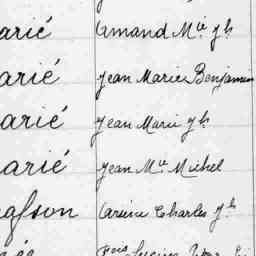 arié Armand Mie Jh
arié Jean Marie Benjamin
arié Jean Marie Jh
arié Jean Mie Michel
Arsène Charles Jh
Fois Lucien